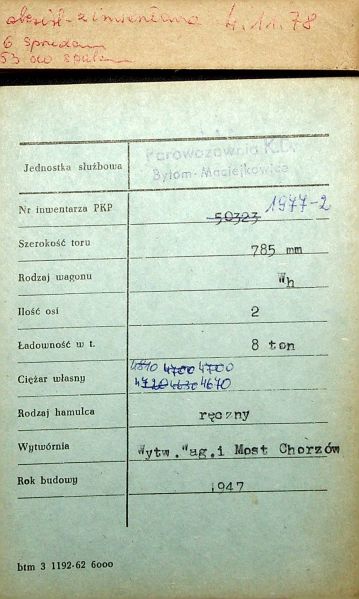 4.11.78
6
53 do
Parowozownia K.D.
Jednostka służbowa
Bytom-Maciejkowice
Nr inwentarza PKP 50323 1977-2
Szerokość toru 785 mm
Rodzaj wagonu Wh
Ilość osi 2
Ładowność w t. 8 ton
4700 4700
Ciężar własny 4720 4630 4670
Rodzaj hamulca ręczny
Wytwórnia Wytw. Wag. i Most Chorzów
Rok budowy 1947
btm 3 1192-62 6000